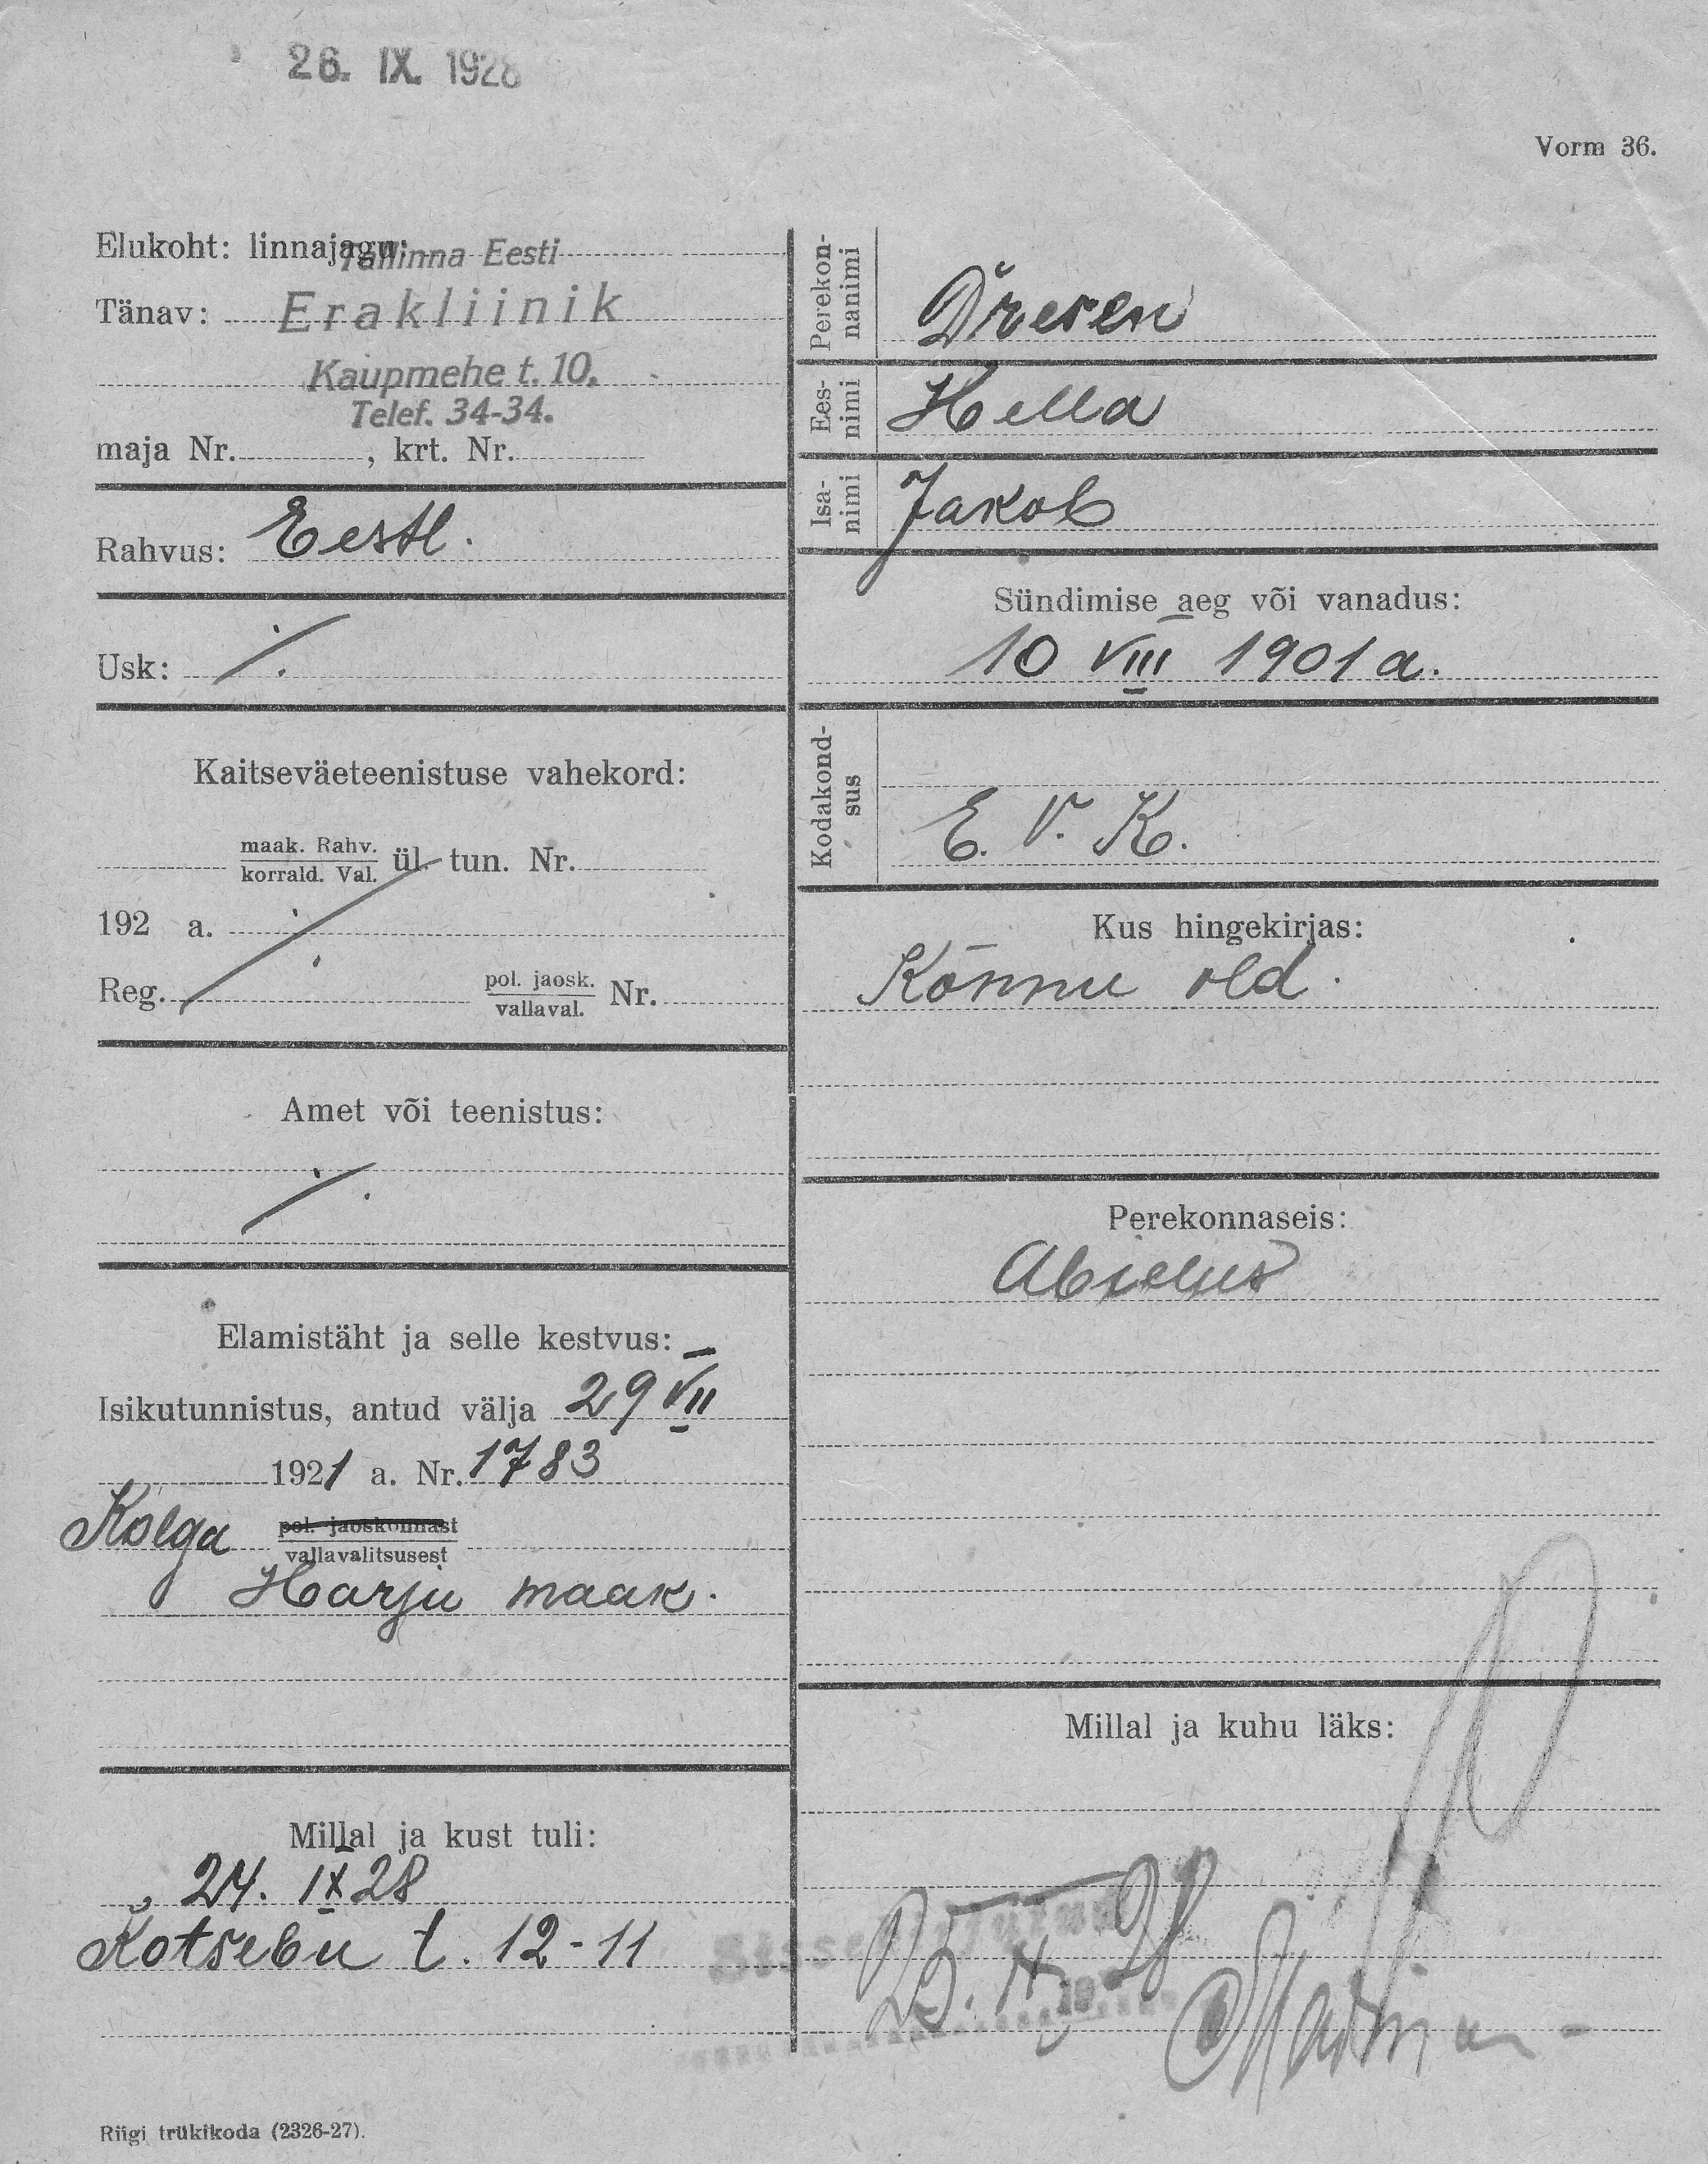 26. IX. 1928
Vorm 36.
Elukoht: linnajagu:
Tallinna Eesti
Tänav: Erakliinik
Kaupmehe t. 10.
Telef. 34-34.
maja Nr. , krt. Nr.
Rahvus: Eestl.
Usk: ·/.
Kaitseväeteenistuse vahekord:
maak. Rahv.
korrald. Val. ül. tun. Nr.
192 a.
Reg. pol. jaosk.
vallaval. Nr.
Amet või teenistus:
·/.
Elamistäht ja selle kestvus:
Isikutunnistus, antud välja 29 VII
1921 a. Nr. 1783
Kolga pol. jaoskonnast
vallavalitsusest
Harju maak.
Millal ja kust tuli:
24. IX 28
Kotsebu t. 12-11
Riigi trükikoda (2326-27).
Perekon-
nanimi
Dresen
Ees-
nimi
Hella
Isa-
nimi
Jakob
Sündimise aeg või vanadus:
10 VIII 1901 a.
Kodakond-
sus
E. V. K.
Kus hingekirjas:
Kõnnu vld.
Perekonnaseis:
Abielus
Millal ja kuhu läks: